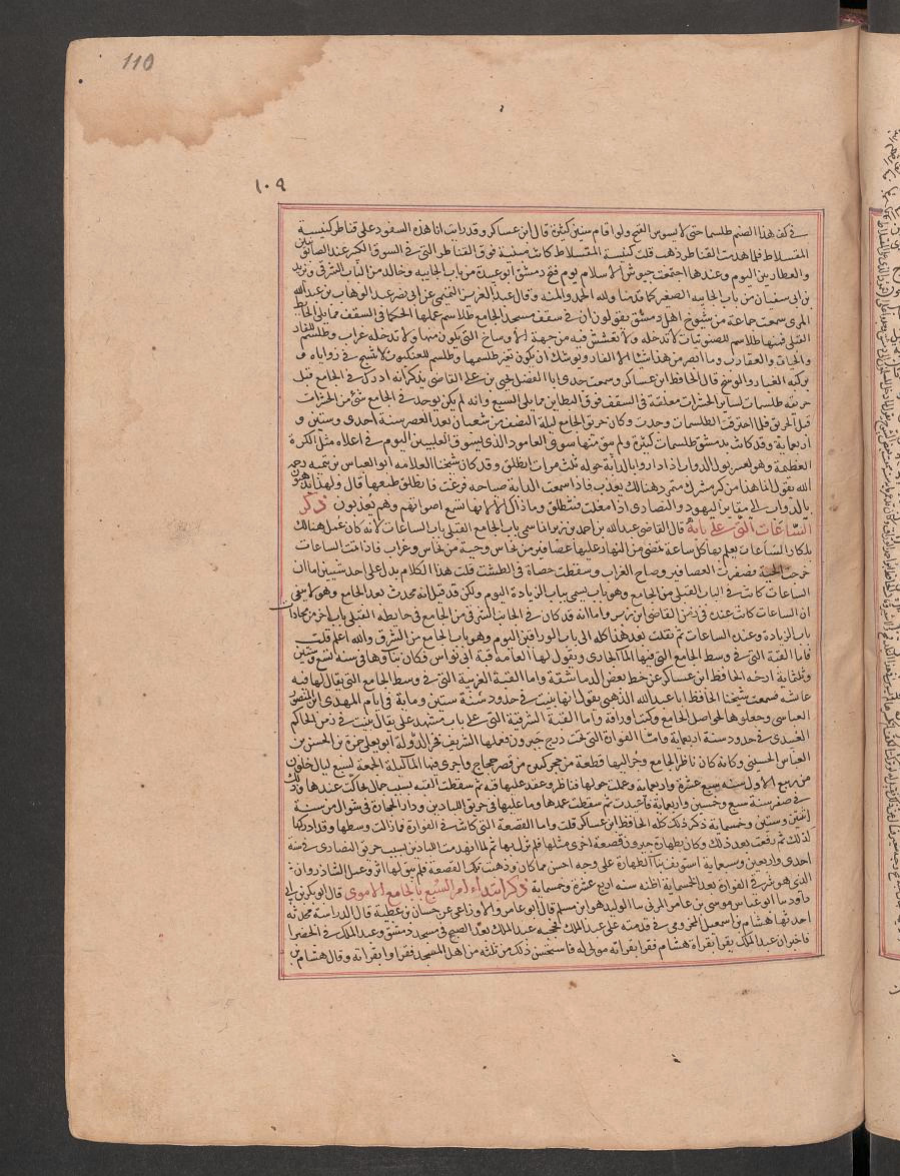 110
١٠٩
في كف هذا الصنم طلسما حتى لا يسوس القمح ولو اقام سنين كثيرة قال ابن عساكر وقد رايت انا هذه السفود على قناطر كنيسة
المقسلاط فلما هدمت القناطر ذهب قلت كنيسة المقسلاط كانت مبنية فوق القناطر التي في السوق الكبير عند الصابونيين
والعطارين اليوم وعندها اجتمعت جيوش الاسلام يوم فتح دمشق ابو عبيدة من باب الجابيه وخالد من الباب الشرقي ويزيد
بن ابي سفيان من باب الجابيه الصغير كما قدمنا ولله الحمد والمنه وقال عبد العزيز التميمي عن ابي نصر عبد الوهاب بن عبد الله
المري سمعت جماعة من شيوخ اهل دمشق يقولون ان في سقف مسجد الجامع طلاسم عملها الحكما في السقف مما يلي الحايط
القبلي فيها طلاسم للصنونيات لا تدخله ولا تعشش فيه من جهة الاوساخ التي تكون منها ولا تدخله غراب وطلسم للفار
والحيات والعقارب وما ابصر من هذا شيا الا الفار ويوشك ان يكون تغير طلسمها وطلسم للعنكبوت لا ينسج في زواياه
يركبه الغبار والوسخ قال الحافظ ابن عساكر وسمعت جدي ابا الفضل يحيى بن علي القاضي يذكر انه ادرك في الجامع قبل
حريقه طلسمات لساير الحشرات معلقة في السقف فوق البطاين مما يلي السبع وانه لم يكن يوجد في الجامع شي من الحشرات
قبل الحريق فلما احترقت الطلسمات وجدت وكان حريق الجامع ليلة النصف من شعبان بعد العصر سنة احدى وستين و
اربعماية وقد كانت بدمشق طلسمات كثيرة ولم يبق منها سوى العامود الذي بسوق العلبيين اليوم في اعلاه مثل الكرة
العظيمة وهو لعسر بول الدواب اذا داروا بالدابة حوله ثلث مرات ينطلق وقد كان شيخنا العلامه ابو العباس بن تيميه رحمه
الله يقول انما هذا من كبر مشرك متمرد هنالك يعذب فاذا سمعت الدابة صياحه فزعت فانطلق طبعها قال ولهذا يذهبون
بالدواب الى مقابر اليهود والنصارى اذا مغلت فتنطلق وما ذاك الا لانها تسمع اصواتهم وهم يعذبون ذكر
الساعات التي على بابه قال القاضي عبد الله بن احمد بن زبر انما سمي باب الجامع القبلي باب الساعات لانه كان عمل هنالك
بلكار الساعات يعلم بها كل ساعة تمضي من النهار عليها عصافير من نحاس وحية من نحاس وغراب فاذا تمت الساعات
خرجت الحية فصفرت العصافير وصاح الغراب وسقطت حصاة في الطشت قلت هذا الكلام يدل على احد شيين اما ان
الساعات كانت في الباب القبلي من الجامع وهو باب يسمى باب الزيادة اليوم ولكن قد قيل انه محدث بعد الجامع وهو لا ينفي
ان الساعات كانت عنده في زمن القاضي ابن زبر واما انه قد كان في الجانب الشرقي من الجامع في حايطه القبلي باب اخر من محاذات
باب الزيادة وعنده الساعات ثم نقلت بعد هذا كله الى باب الوراقين اليوم وهو باب الجامع من الشرق والله اعلم قلت
فاما القبة التي في وسط الجامع التي فيها الما الجاري ويقول لها العامه قبة ابي نواس فكان بناوها في سنه تسع وستين
وثلثماية ارخه الحافظ ابن عساكر عن خط بعض الدماشقة واما القبة الغربية التي في وسط الجامع التي يقال لها قبه
عائشة فسمعت شيخنا الحافظ ابا عبد الله الذهبي يقول انها بنيت في حدود سنة ستين وماية في ايام المهدي ابن المنصور
العباسي وجعلوها لحواصل الجامع وكتب اوراقه واما القبة الشرقية التي على باب مشهد علي يقال بنيت في زمن الحاكم
العبيدي في حدود سنة اربعماية وامّا الفوارة التي تحت درج جيرون فعملها الشريف فخر الدولة ابو يعلى حمزة بن الحسن بن
العباس الحسيني وكانه كان ناظر الجامع وجر اليها قطعة من حجر كبير من قصر حجاج واجرى فيها الما ليلة الجمعه لسبع ليال خلون
من ربيع الاول سنه سبع عشرة واربعماية وعملت حولها قناطر وعقد عليها قبه ثم سقطت القبه بسبب جمال تحاكت عندها وذلك
في صفر سنة سبع وخمسين واربعماية فاعيدت ثم سقطت عمدها وما عليها في حريق اللبادين ودار الحجارة في شوال من سنة
اثنتين وستين وخمسماية ذكر ذلك كله الحافظ ابن عساكر قلت واما القصعة التي كانت في الفوارة فما زالت وسطها وقد ادركتها
كذلك ثم رفعت بعد ذلك وكان بطهارة جيرون قصعة اخرى مثلها فلم تزل بها ثم لما انهدمت اللبادين بسبب حريق النصارى في سنه
احدى واربعين وسبعماية استونف بنا الطهارة على وجه احسن مما كان وذهبت تلك القصعة فلم يبق لها اثر وعمل الشاذروان
الذي هو شرقي الفوارة بعد الخمسماية اظنه سنه اربع عشرة وخمسماية ذكر ابتداء امر السبع بالجامع الاموي قال ابو بكر بن ابي
داود ما ابو عباس موسى بن عامر المري ما الوليد هو ابن مسلم قال ابو عامر والاوزاعي عن حسان بن عطية قال الدراسة محدثه
احدثها هشام بن اسمعيل المخزومي في قدمته على عبد الملك فحجبه عبد الملك بعد الصبح في مسجد دمشق وعبد الملك في الخضرا
فاخبر ان عبد الملك يقرا بقراءة هشام فقرا بقراته مولى له فاستحسن ذلك من ثلثه من اهل المسجد فقراوا بقراته وقال هشام بن